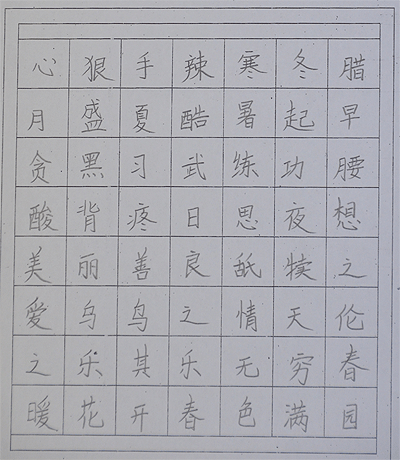 心狠手辣寒冬腊
月盛夏酷暑起早
贪黑习武练功腰
酸背疼日思夜想
美丽善良舐犊之
爱乌鸟之情天伦
之乐其乐无穷春
暖花开春色满园